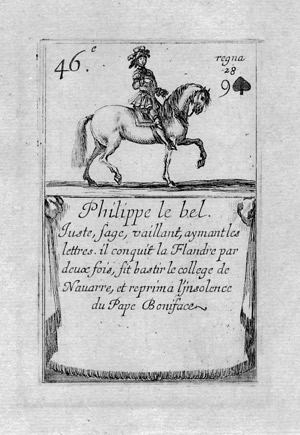 46.e
regna
28
9♠
Philippe le bel.
Juste, sage, vaillant, aymant les
lettres. il conquit la Flandre par
deux fois, fit bastir le college de
Nauarre, et reprima l'jnsolence
du Pape Boniface